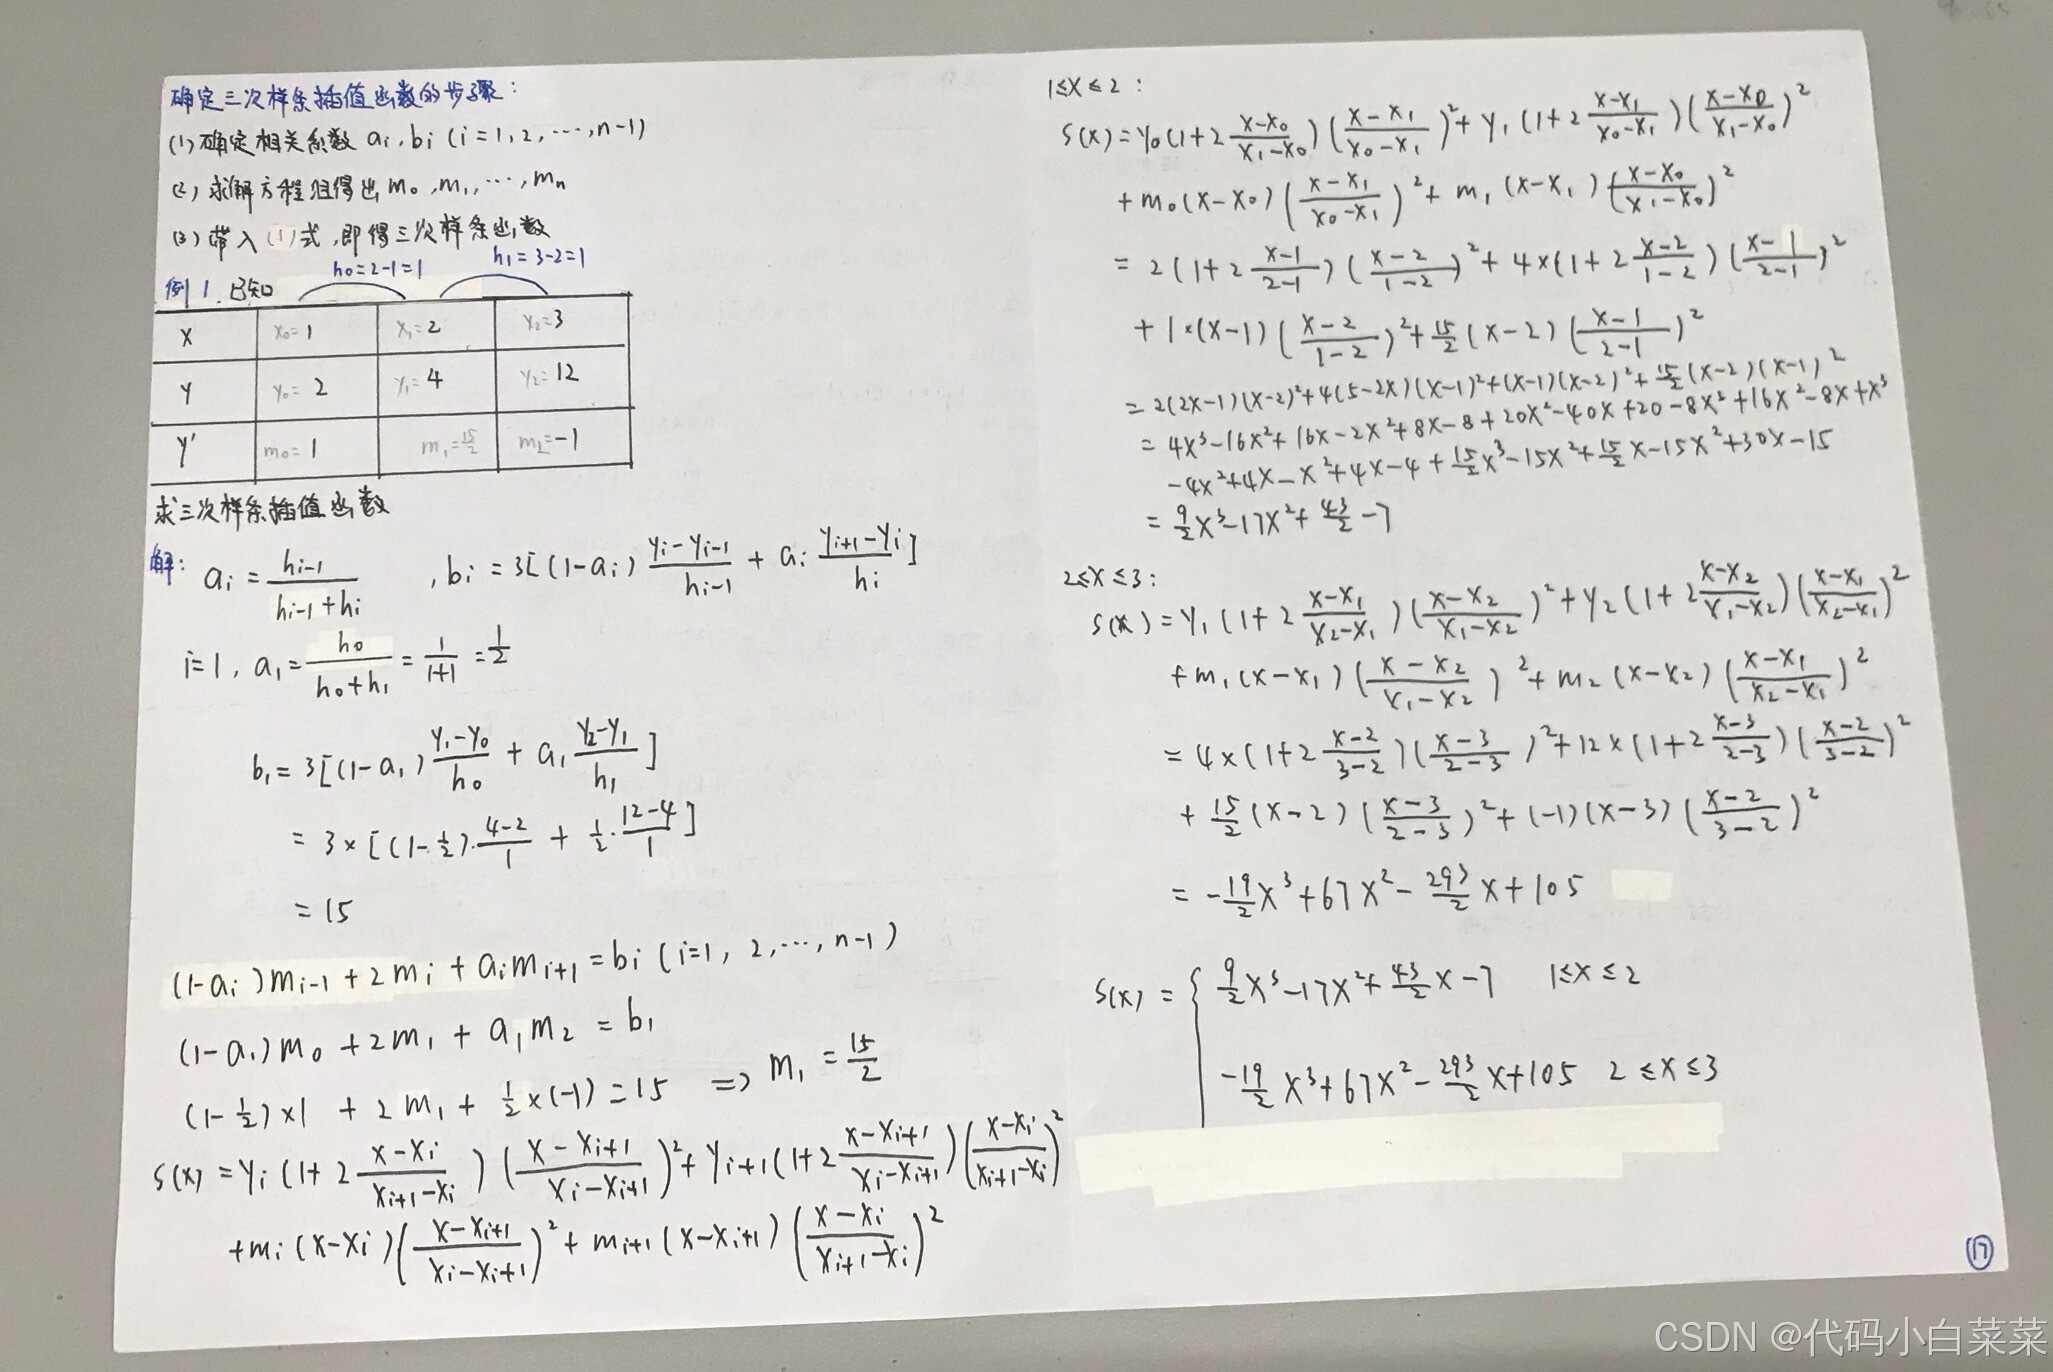 确定三次样条插值函数的步骤：
(1) 确定相关系数 ai, bi (i=1, 2, ⋯, n-1)
(2) 求解方程组得出 m₀, m₁, ⋯, mₙ
(3) 带入(1)式, 即得三次样条函数
h₀=2-1=1 h₁=3-2=1
例1 已知
x x₀=1 x₁=2 x₂=3
y y₀=2 y₁=4 y₂=12
y' m₀=1 m₁=15/2 m₂=-1
求三次样条插值函数
解: ai = hi-1/(hi-1+hi) , bi = 3[(1-ai) (yi-yi-1)/hi-1 + ai (yi+1-yi)/hi]
i=1, a₁ = h₀/(h₀+h₁) = 1/(1+1) = 1/2
b₁ = 3[(1-a₁) (y₁-y₀)/h₀ + a₁ (y₂-y₁)/h₁]
= 3×[(1-1/2)·(4-2)/1 + 1/2·(12-4)/1]
= 15
(1-ai)mi-1 + 2mi + aimi+1 = bi (i=1, 2, ⋯, n-1)
(1-a₁)m₀ + 2m₁ + a₁m₂ = b₁
(1-1/2)×1 + 2m₁ + 1/2×(-1) = 15 ⇒ m₁ = 15/2
s(x) = yi(1+2 (x-xi)/(xi+1-xi)) ((x-xi+1)/(xi-xi+1))² + yi+1(1+2 (x-xi+1)/(xi-xi+1)) ((x-xi)/(xi+1-xi))²
+ mi(x-xi) ((x-xi+1)/(xi-xi+1))² + mi+1(x-xi+1) ((x-xi)/(xi+1-xi))²
1≤x≤2:
s(x) = y₀(1+2 (x-x₀)/(x₁-x₀)) ((x-x₁)/(x₀-x₁))² + y₁(1+2 (x-x₁)/(x₀-x₁)) ((x-x₀)/(x₁-x₀))²
+ m₀(x-x₀) ((x-x₁)/(x₀-x₁))² + m₁(x-x₁) ((x-x₀)/(x₁-x₀))²
= 2(1+2 (x-1)/(2-1)) ((x-2)/(1-2))² + 4×(1+2 (x-2)/(1-2)) ((x-1)/(2-1))²
+ 1×(x-1) ((x-2)/(1-2))² + 15/2 (x-2) ((x-1)/(2-1))²
= 2(2x-1)(x-2)² + 4(5-2x)(x-1)² + (x-1)(x-2)² + 15/2 (x-2)(x-1)²
= 4x³-16x²+16x-2x²+8x-8+20x²-40x+20-8x³+16x²-8x+x³
-4x²+4x-x²+4x-4+15/2x³-15x²+15/2x-15x²+30x-15
= 9/2x³-17x²+43/2-7
2≤x≤3:
s(x) = y₁(1+2 (x-x₁)/(x₂-x₁)) ((x-x₂)/(x₁-x₂))² + y₂(1+2 (x-x₂)/(x₁-x₂)) ((x-x₁)/(x₂-x₁))²
+ m₁(x-x₁) ((x-x₂)/(x₁-x₂))² + m₂(x-x₂) ((x-x₁)/(x₂-x₁))²
= 4×(1+2 (x-2)/(3-2)) ((x-3)/(2-3))² + 12×(1+2 (x-3)/(2-3)) ((x-2)/(3-2))²
+ 15/2 (x-2) ((x-3)/(2-3))² + (-1)(x-3) ((x-2)/(3-2))²
= -19/2x³+67x²-293/2x+105
s(x) = { 9/2x³-17x²+43/2x-7 1≤x≤2
-19/2x³+67x²-293/2x+105 2≤x≤3
17
CSDN @代码小白菜菜